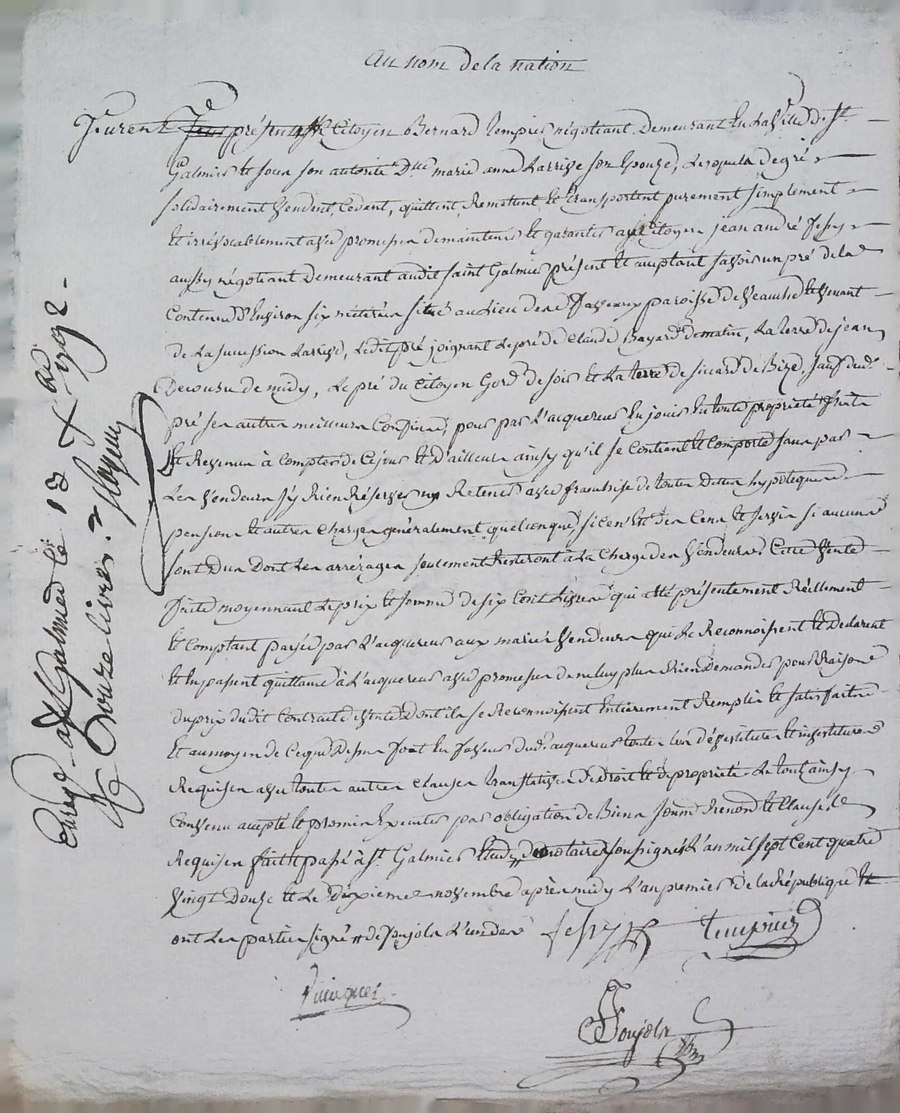 Au nom de la nation
Furent présents le Citoyen Bernard tempier négotiant, Demeurant En la Ville de St
Galmier Et sous son autorité Dlle marie anne Larrize son Epouze, Lesquels de gré
solidairement Vendent, Cedent, quittent, Remettent Et transportent purement simplement
Et irrévocablement avec promesse de maintenir Et garantir au Citoyen jean andré
aussy négotiant Demeurant audit saint Galmier présent Et acceptant savoir un pré de la
Contenue d'Environ six méterées situé au Lieu de paroisse de Veauche Et Venant
de La sucession Larrize, Ledit pré joignant Le pré de Claude Bayard de matin, La terre de jean
de midy, Le pré du Citoyen de soir Et La terre de de Bize, sauf dud.
pré ses autres meilleurs Confins, pour par L'acquereur En jouir En toute propriété fruits
Et Revenus à Compter de Ce jour Et d'ailleurs ainsy qu'il se Contient Et Comporte sans par
Les Vendeurs s'y Rien Réserver ny Retenir avec franchise de toutes Dettes hypoteques
pensions Et autres Charges généralement quelconques, si ce n'est des Cens Et servis si aucuns
sont Dus Dont Les arrérages seulement Resteront à La Charge des Vendeurs, Cette Vente
faite moyennant Le prix Et somme de six Cent Livres qui a été présentement Réellement
Et Comptant payée par L'acquereur aux mariés Vendeurs qui Le Reconnoissent Et Déclarent
Et En passent quittance à L'acquereur avec promesse de ne luy plus Rien Demander pour Raison
du prix du dit Contrat de Vente dont ils se Reconnoissent Entièrement Remplis Et satisfaits
Et au moyen de Ce que Dessus font En faveur dud. acquereur toutes Les dévestiture Et investiture
Requises avec toutes autres Clauses translatives de Droit Et de propriété Le tout ainsy
Convenu accepté Et promis Executer par obligation de Biens soumis. Renond. Et Clauses
Requises fait Et passé à St Galmier Etude du notaire soussigné L'an mil sept Cent quatre
Vingt Douze Et Le dixieme novembre après midy L'an premier de la République Et
ont Les parties signé # de Poujols L'un des
tempier
Poujols
Enreg. à St Galmier le 18 Xbre 1792
Rc Douze livres.